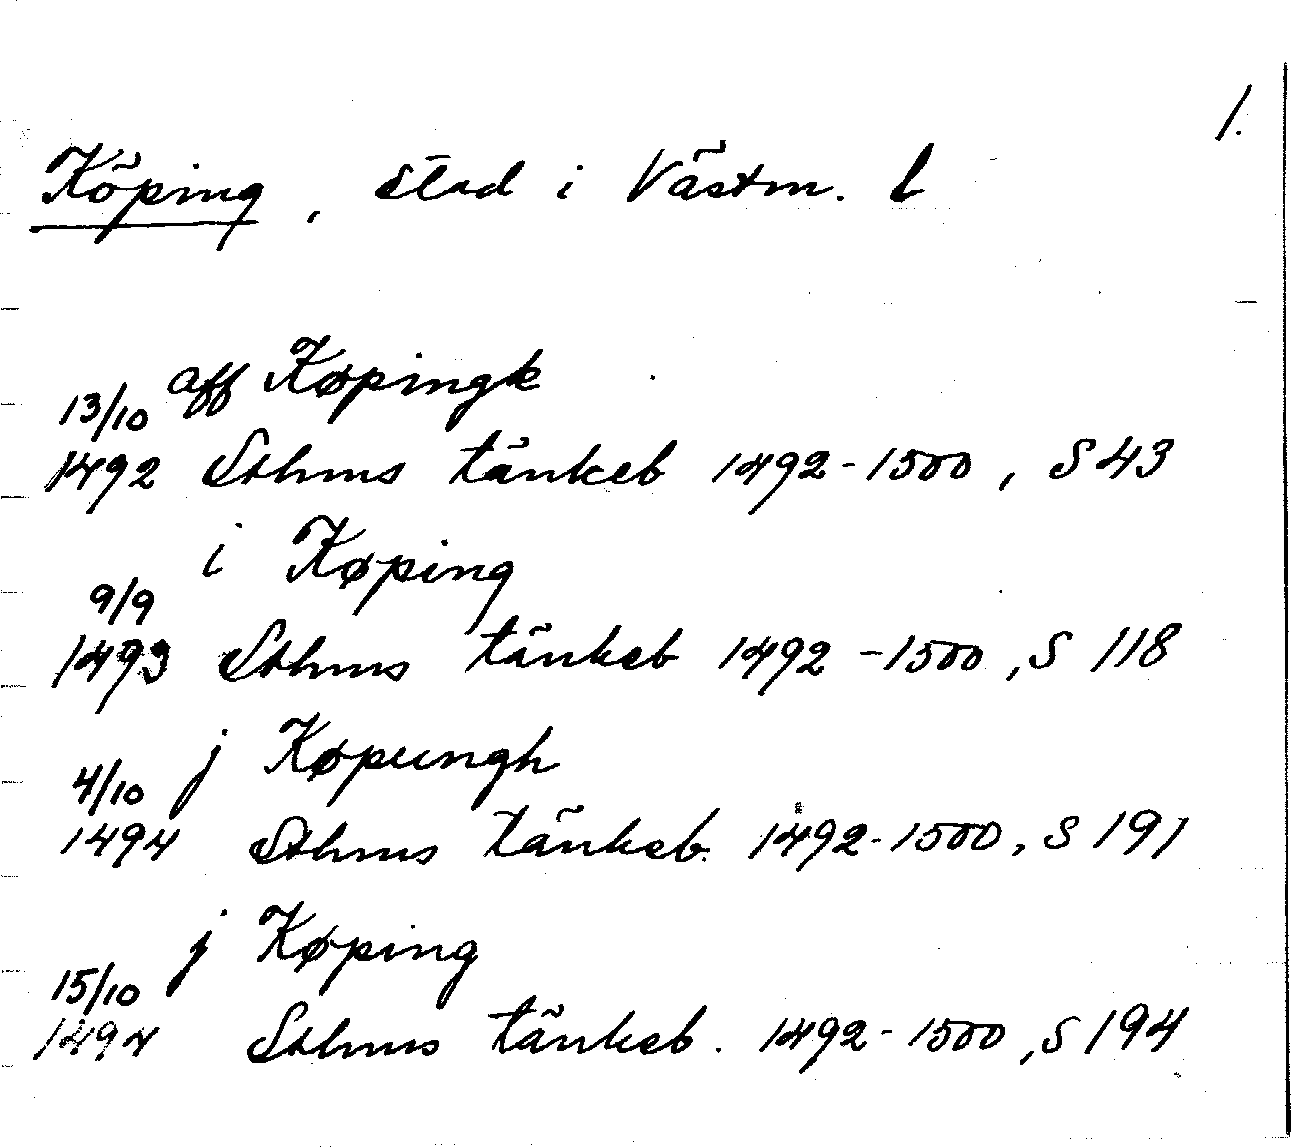 1.
Köping, stad i Västm. l
aff Køpingk
13/10
1492 Sthms tänkeb 1492-1500, S 43
i Køping
9/9
1493 Sthms tänkeb 1492-1500, S 118
j Køpungh
4/10
1494 Sthms tänkeb. 1492-1500, S 191
j Køping
15/10
1494 Sthms tänkeb. 1492-1500, S 194